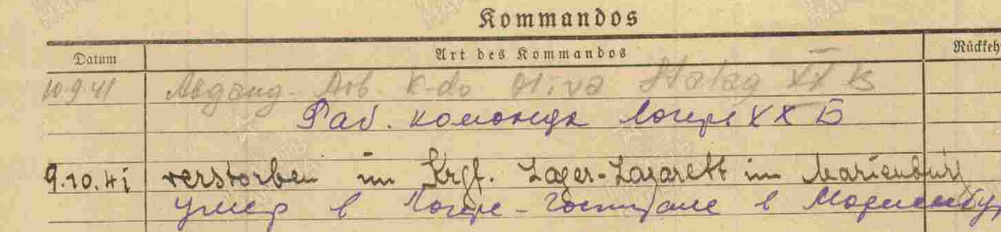 Kommandos
Datum Art des Kommandos Rückkeh
10.9.41 Abgang. Arb. K-do Oliva Stalag XX B
Раб. команда лагерь XX Б
9.10.41 verstorben im Krgf. Lager-Lazarett in Marienburg
умер в лагере-госпитале в Мариенбур